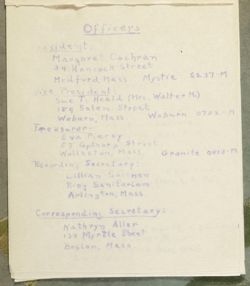 Officers
President:
Margaret Cochran
Hancock Street
Medford, Mass Mystic 5237-M
Vice President:
Sue T. Heald (Mrs. Walter M.)
189 Salem Street
Woburn, Mass Woburn
Treasurer:
Eva Piercy
Street
Wollaston, Mass. Granite
Recording Secretary:
Lillian
Ring Sanitarium
Arlington, Mass.
Corresponding Secretary:
Kathryn Aller
Myrtle Street
Boston, Mass